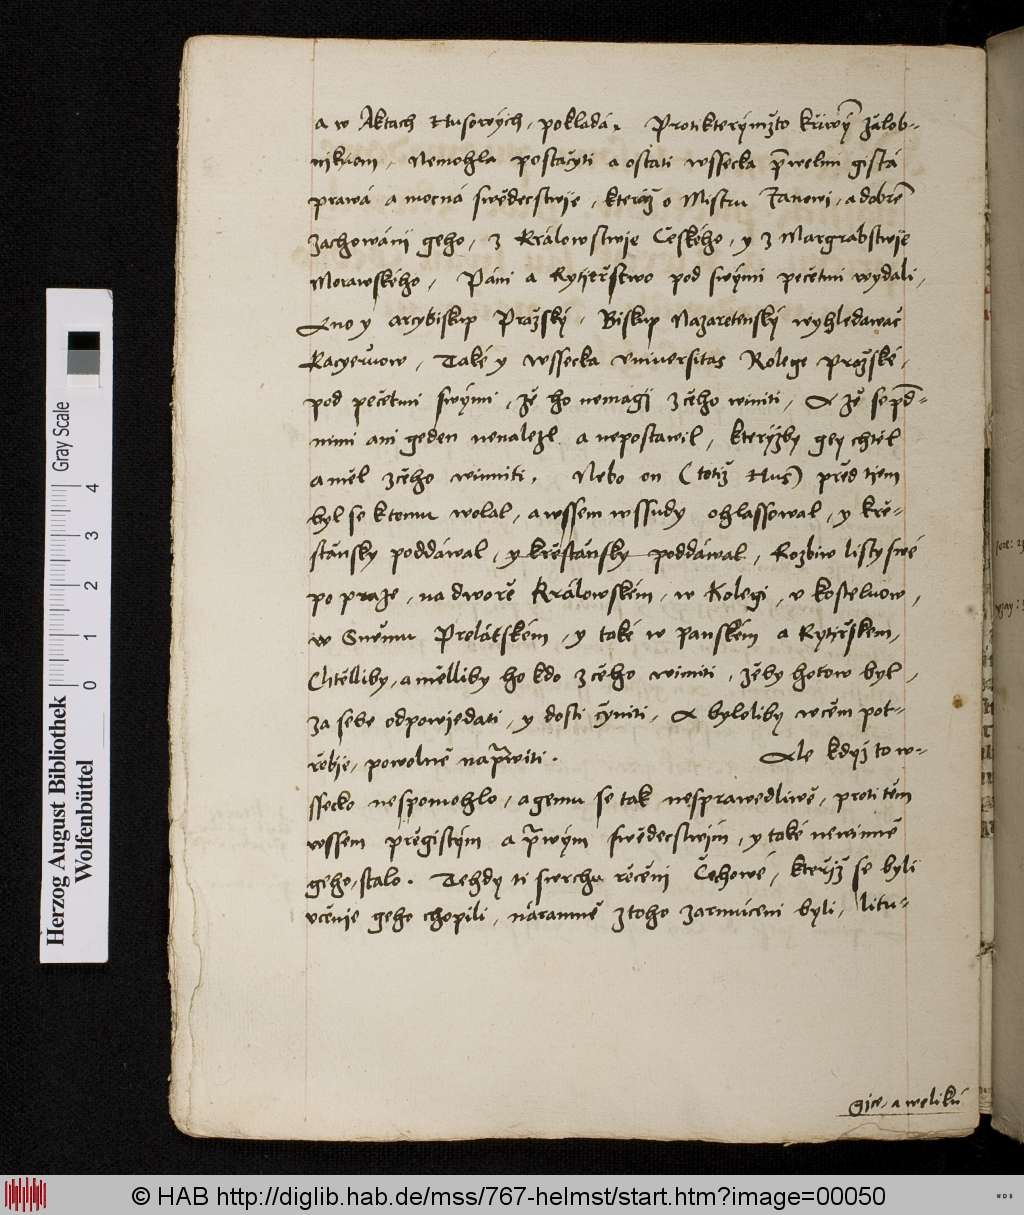 a w Aktach Husowých, pokládá. Protikterýmžto křiwý̄ žalob-
nikuom, Nemohla postačyti a ostati wssecka p̄welmi gistá
prawá a mocná swědecstwije, kteráž o Mistru Janowi, a dobrē
zachowánij geho, z Králowstwie Českého, y z Margrabstwije
Morawského, Páni a Rytjeřstwo pod swými pečetmi wydali,
Ano y arcybiskup Pražský, Biskup Nazaretenský wyhledawač
Kacyeruow, Také y wssecka vniuersitas Kolege Pražské,
pod pečetmi swými, že ho nemagij zčeho winiti, A že sepřd-
nimi ani geden nenalezl a nepostawil, kterýžby gey chtěl
a měl zčeho winniti, Nebo on (totiž Hus) před tiem
byl se ktomu wolal, a wssem wssudy ohlassowal, y křě-
stánsky poddáwal, y křěstánsky poddáwal, Rozbiw listy swé
po praze, na dwoře Králowském, w Kolegi, v kosteluow,
w Sněmu Prelátském, y také w panském a Rytiřskem,
Chtělliby, a mělliby ho kdo zčeho winiti, žeby hotow byl,
za sebe odpowjedati, y dosti čyniti, A byloliby wčem pot-
řebje, powolně nap̄witi. Ale kdyz to w-
ssecko nespomohlo, a gemu se tak nesprawedliwě, proti těm
wssem přegistým a p̄wým swědecstwijm, y také newinně
geho, stalo. Tehdy ti swrchu řečeni Čechowé, kteříž se byli
včenie geho chopili, náramně ztoho zarmúceni byli, litu-
Gice, a weliků
Herzog August Bibliothek
Wolfenbüttel
Gray Scale
0 1 2 3 4
© HAB http://diglib.hab.de/mss/767-helmst/start.htm?image=00050